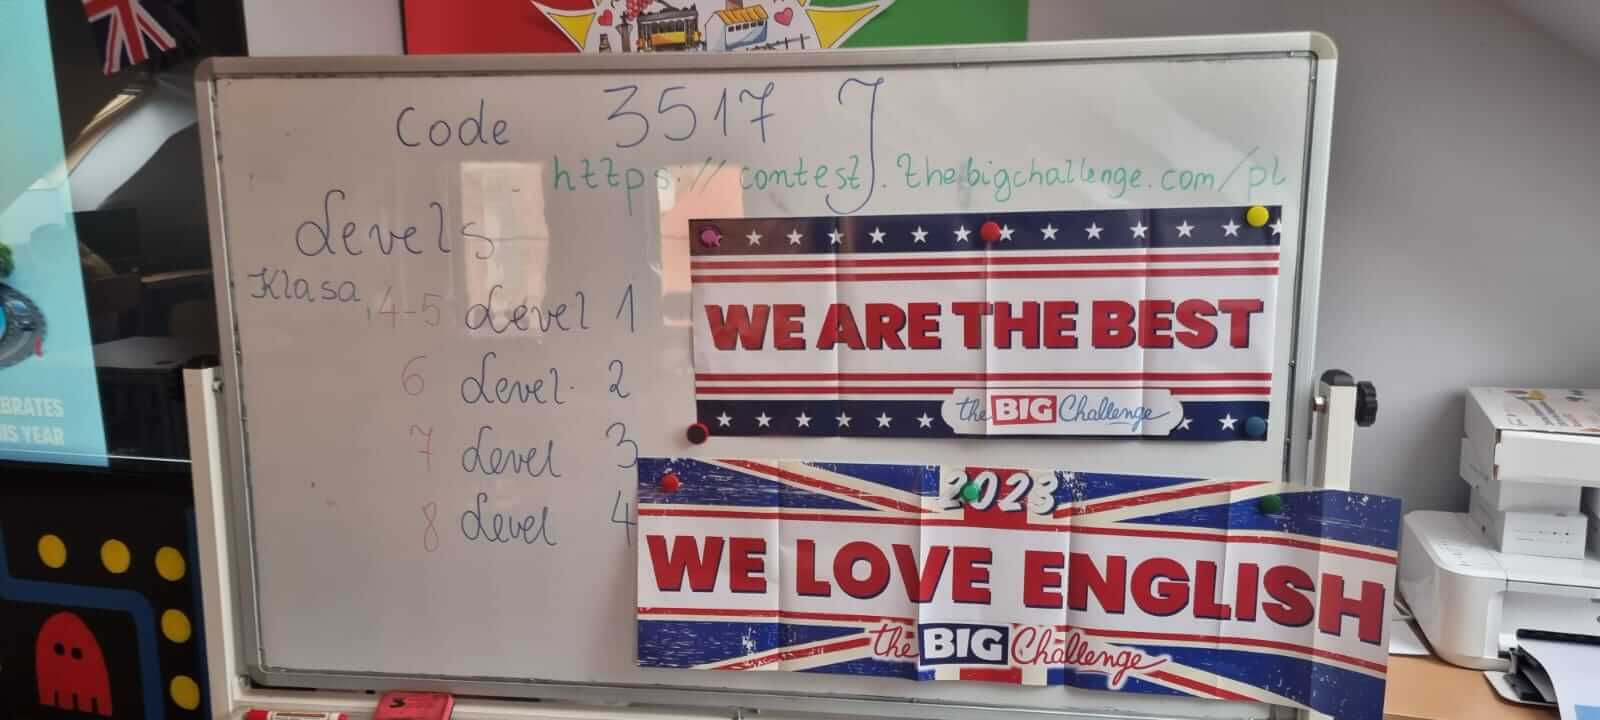 Code 3517 J
https://contest.thebigchallenge.com/pl
Levels
Klasa 4-5 Level 1
6 Level 2
7 Level 3
8 Level 4
WE ARE THE BEST
the BIG Challenge
2023
WE LOVE ENGLISH
the BIG Challenge
BRATES
IS YEAR